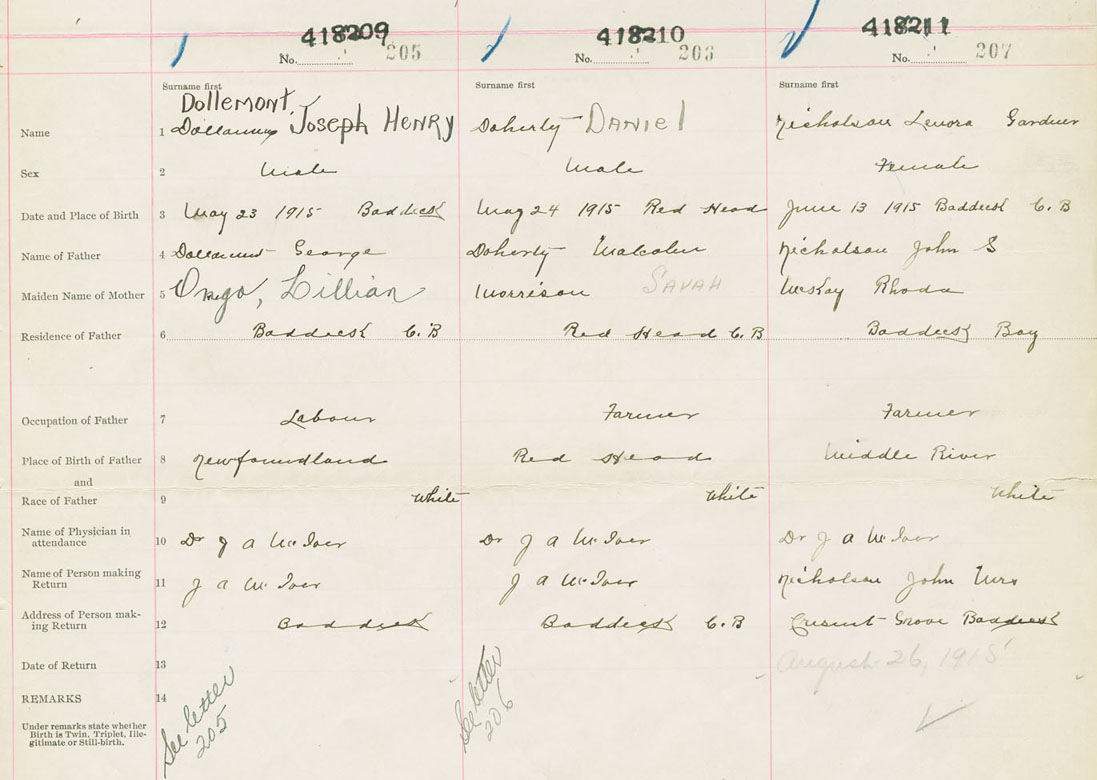 418209 418210 418211
No. 205 No. 206 No. 207
Surname first Surname first Surname first
Dollemont,
Name 1 Dollamus Joseph Henry Doherty Daniel Nicholson Lenora Gardner
Sex 2 Male Male Female
Date and Place of Birth 3 May 23 1915 Baddeck May 24 1915 Red Head June 13 1915 Baddeck C.B
Name of Father 4 George Doherty Malcolm Nicholson John S
Maiden Name of Mother 5 Lillian Morrison Sarah McKay Rhoda
Residence of Father 6 Baddeck C.B Red Head C.B Baddeck Bay
Occupation of Father 7 Labour Farmer Farmer
Place of Birth of Father 8 Newfoundland Red Head Middle River
and
Race of Father 9 White White White
Name of Physician in
attendance 10 Dr J A McIver Dr J A McIver Dr J A McIver
Name of Person making
Return 11 J A McIver J A McIver Nicholson John Mrs
Address of Person mak-
ing Return 12 Baddeck Baddeck C.B Grove Baddeck
Date of Return 13 August 26, 1915
REMARKS 14
Under remarks state whether
Birth is Twin, Triplet, Ille-
gitimate or Still-birth.
See letter
205
See letter
206